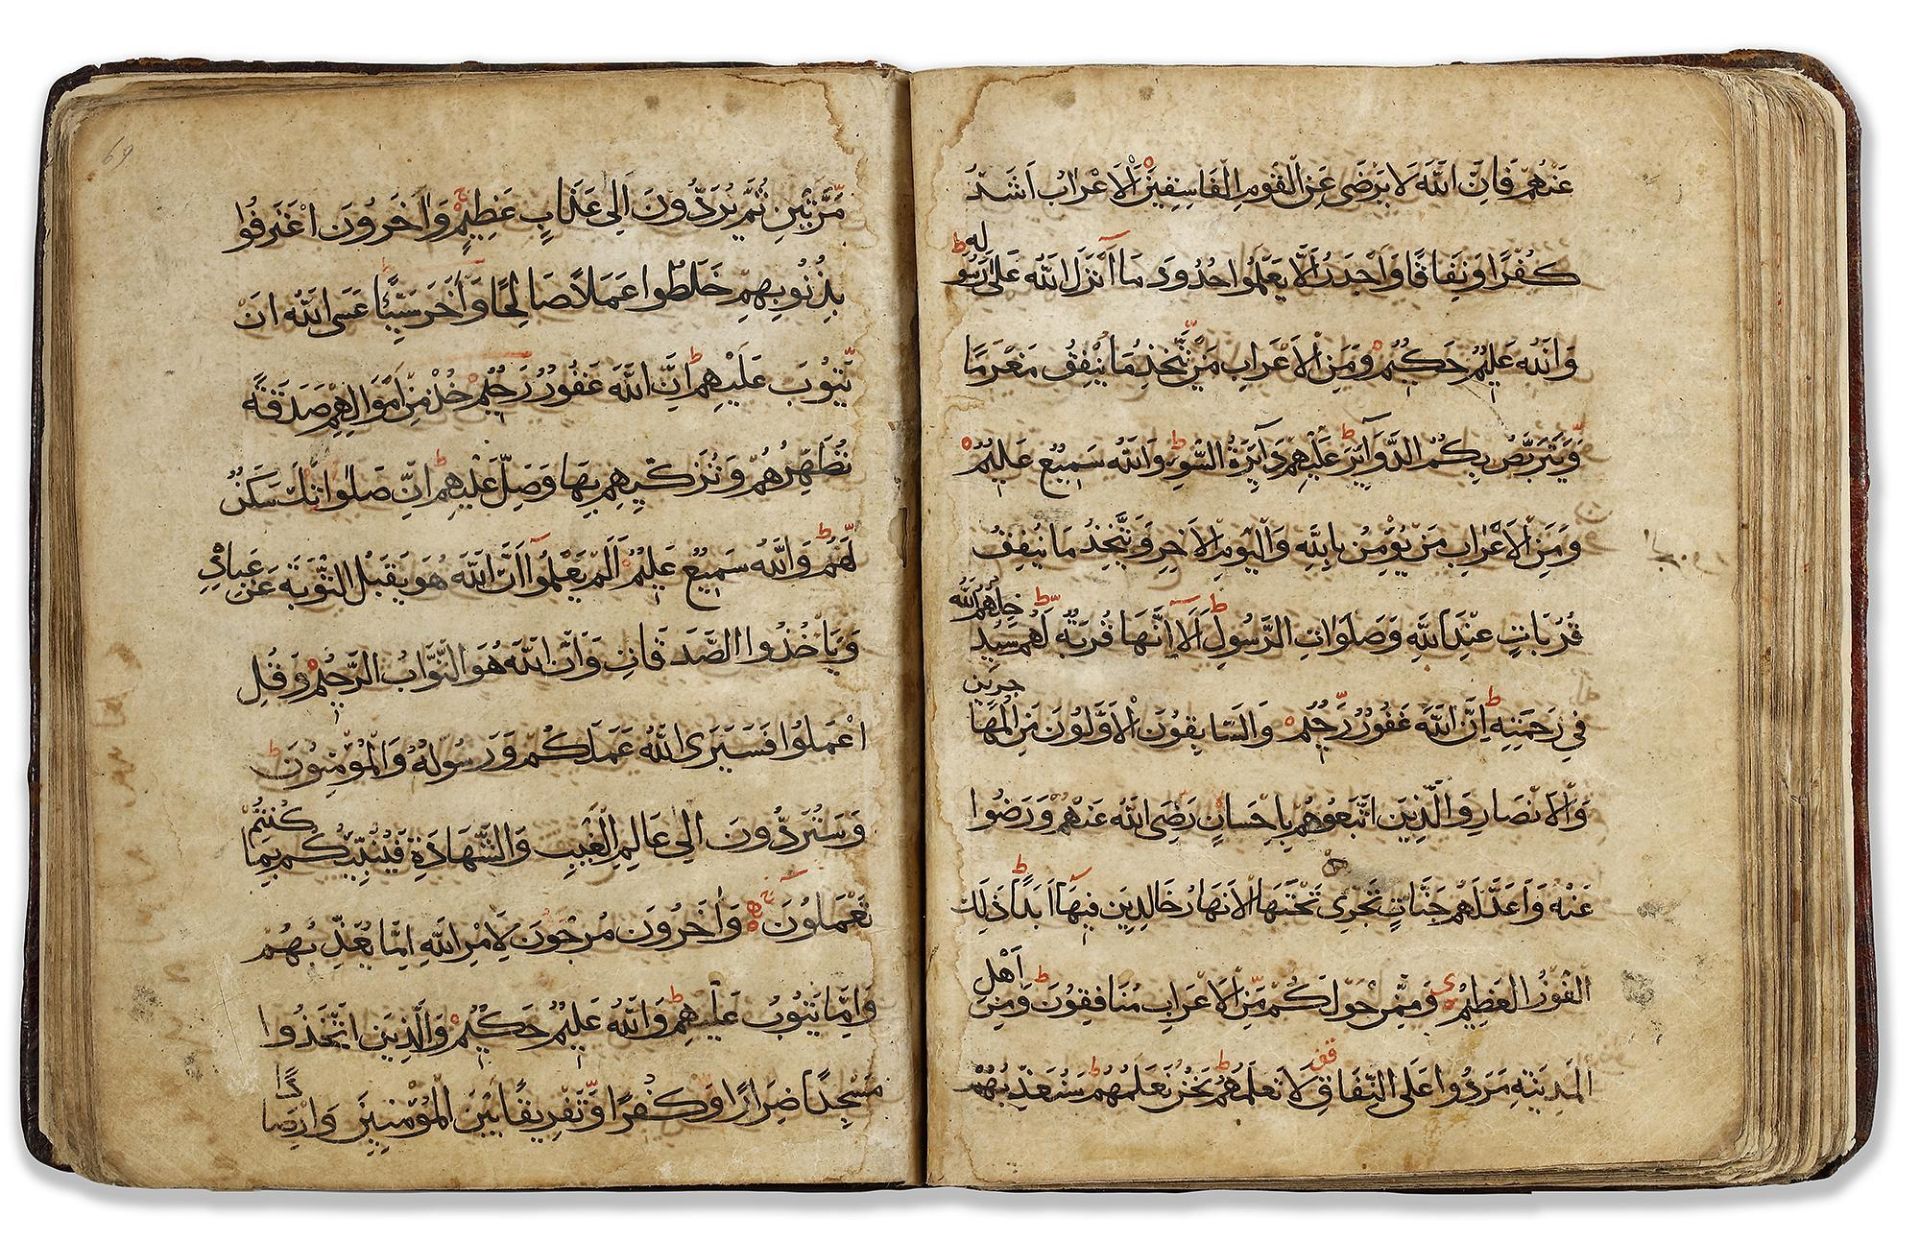 عَنْهُمْ فَاِنَّ اللّٰهَ لَا يَرْضٰى عَنِ الْقَوْمِ الْفَاسِقِيْنَ اَلْاَعْرَابُ اَشَدُّ
كُفْرًا وَنِفَاقًا وَاَجْدَرُ اَلَّا يَعْلَمُوا حُدُودَ مَا اَنْزَلَ اللّٰهُ عَلٰى رَسُولِهِ
وَاللّٰهُ عَلِيمٌ حَكِيمٌ وَمِنَ الْاَعْرَابِ مَنْ يَتَّخِذُ مَا يُنْفِقُ مَغْرَمًا
وَيَتَرَبَّصُ بِكُمُ الدَّوَآئِرَ عَلَيْهِمْ دَآئِرَةُ السَّوْءِ وَاللّٰهُ سَمِيعٌ عَلِيمٌ
وَمِنَ الْاَعْرَابِ مَنْ يُؤْمِنُ بِاللّٰهِ وَالْيَوْمِ الْاٰخِرِ وَيَتَّخِذُ مَا يُنْفِقُ
قُرُبَاتٍ عِنْدَ اللّٰهِ وَصَلَوَاتِ الرَّسُولِ اَلَا اِنَّهَا قُرْبَةٌ لَهُمْ سَيُدْخِلُهُمُ اللّٰهُ
فِي رَحْمَتِهِ اِنَّ اللّٰهَ غَفُورٌ رَحِيمٌ وَالسَّابِقُونَ الْاَوَّلُونَ مِنَ الْمُهَاجِرِينَ
وَالْاَنْصَارِ وَالَّذِينَ اتَّبَعُوهُمْ بِاِحْسَانٍ رَضِيَ اللّٰهُ عَنْهُمْ وَرَضُوا
عَنْهُ وَاَعَدَّ لَهُمْ جَنَّاتٍ تَجْرِي تَحْتَهَا الْاَنْهَارُ خَالِدِينَ فِيهَا اَبَدًا ذٰلِكَ
الْفَوْزُ الْعَظِيمُ وَمِمَّنْ حَوْلَكُمْ مِنَ الْاَعْرَابِ مُنَافِقُونَ وَمِنْ اَهْلِ
الْمَدِينَةِ مَرَدُوا عَلَى النِّفَاقِ لَا تَعْلَمُهُمْ نَحْنُ نَعْلَمُهُمْ سَنُعَذِّبُهُمْ
مَرَّتَيْنِ ثُمَّ يُرَدُّونَ اِلٰى عَذَابٍ عَظِيمٍ وَاٰخَرُونَ اعْتَرَفُوا
بِذُنُوبِهِمْ خَلَطُوا عَمَلًا صَالِحًا وَاٰخَرَ سَيِّئًا عَسَى اللّٰهُ اَنْ
يَتُوبَ عَلَيْهِمْ اِنَّ اللّٰهَ غَفُورٌ رَحِيمٌ خُذْ مِنْ اَمْوَالِهِمْ صَدَقَةً
تُطَهِّرُهُمْ وَتُزَكِّيهِمْ بِهَا وَصَلِّ عَلَيْهِمْ اِنَّ صَلٰوَاتِكَ سَكَنٌ
لَهُمْ وَاللّٰهُ سَمِيعٌ عَلِيمٌ اَلَمْ يَعْلَمُوا اَنَّ اللّٰهَ هُوَ يَقْبَلُ التَّوْبَةَ عَنْ عِبَادِهِ
وَيَاْخُذُوا الصَّدَقَاتِ وَاَنَّ اللّٰهَ هُوَ التَّوَّابُ الرَّحِيمُ وَقُلِ
اعْمَلُوا فَسَيَرَى اللّٰهُ عَمَلَكُمْ وَرَسُولُهُ وَالْمُؤْمِنُونَ
وَسَتُرَدُّونَ اِلٰى عَالِمِ الْغَيْبِ وَالشَّهَادَةِ فَيُنَبِّئُكُمْ بِمَا كُنْتُمْ
تَعْمَلُونَ وَاٰخَرُونَ مُرْجَوْنَ لِاَمْرِ اللّٰهِ اِمَّا يُعَذِّبُهُمْ
وَاِمَّا يَتُوبُ عَلَيْهِمْ وَاللّٰهُ عَلِيمٌ حَكِيمٌ وَالَّذِينَ اتَّخَذُوا
مَسْجِدًا ضِرَارًا وَكُفْرًا وَتَفْرِيقًا بَيْنَ الْمُؤْمِنِينَ وَاِرْصَادًا